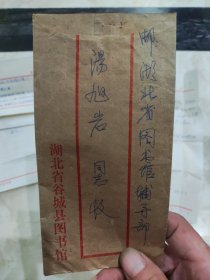 邮湖北省图书馆辅导部
汤旭岩 同志 收
湖北省谷城县图书馆